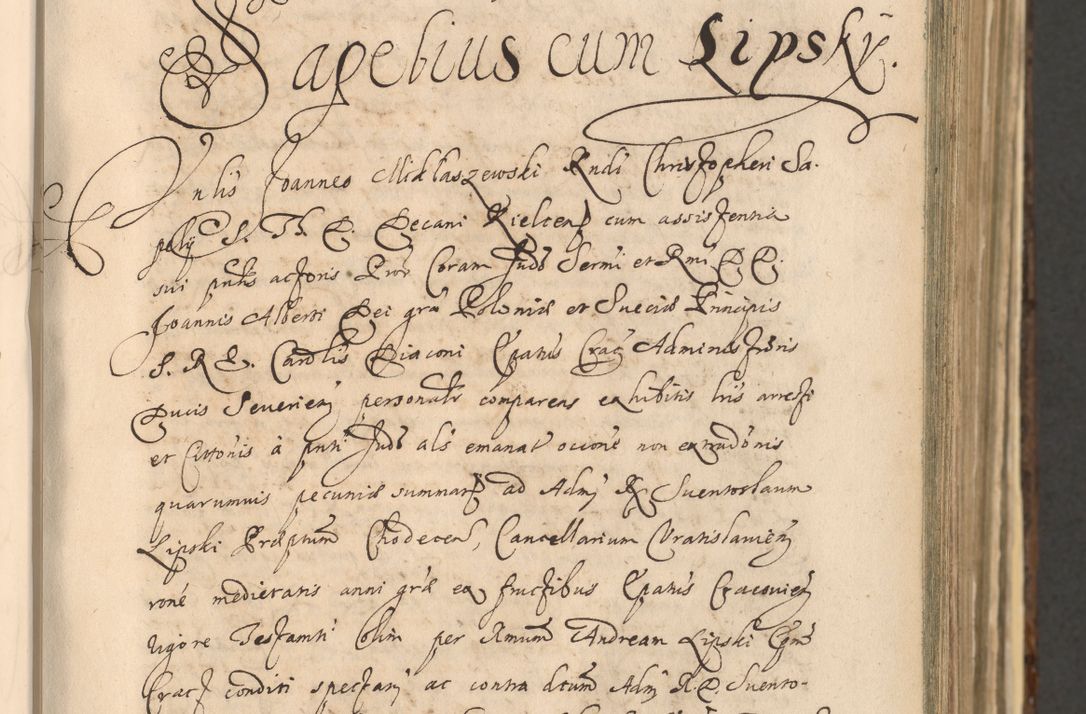 Sapehius cum Lipsky.
Nlis Joannes Miklaszewski Rndi Christopheri Sa-
pehy S. Th. D. Decani Kielcen cum assistentia
sui pntis actoris Pror Coram Judo Sermi et Rmi D D.
Joannis Alberti Dei gra Poloniæ et Sueciæ Principis
S. R. E. Cardlis Diaconi Epatus Crac Administoris
Ducis Severien, personalr comparens exhibitis lris arresti
et Cittonis à pnti Judo als emanat occione non extradonis
quarumvis pecuniæ summar ad Adm R Suentoslaum
Lipski Præptum Chodecen, Cancellarium Vratislavien
rone medietatis anni græ ex fructibus Epatus Cracovien
vigore Testamti olim per Rmum Andream Lipski Epum
Crac conditi spectan ac contra dctum Adm R. D. Suento-